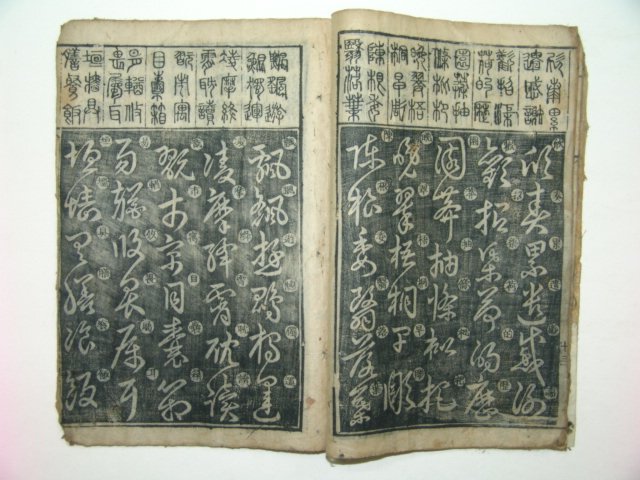 欣奏累
遣慼謝
歡招渠
荷的歷
園莽抽
條枇杷
晚翠梧
桐早彫
陳根委
翳落葉
欣奏累遣慼謝
歡招渠荷的歷
園莽抽條枇杷
晚翠梧桐早彫
陳根委翳落葉
十二
飄颻遊
鵾獨運
凌摩絳
霄耽讀
翫市寓
目囊箱
易輶攸
畏屬耳
垣牆具
膳飡飯
飄颻遊鵾獨運
凌摩絳霄耽讀
翫市寓目囊箱
易輶攸畏屬耳
垣牆具膳飡飯